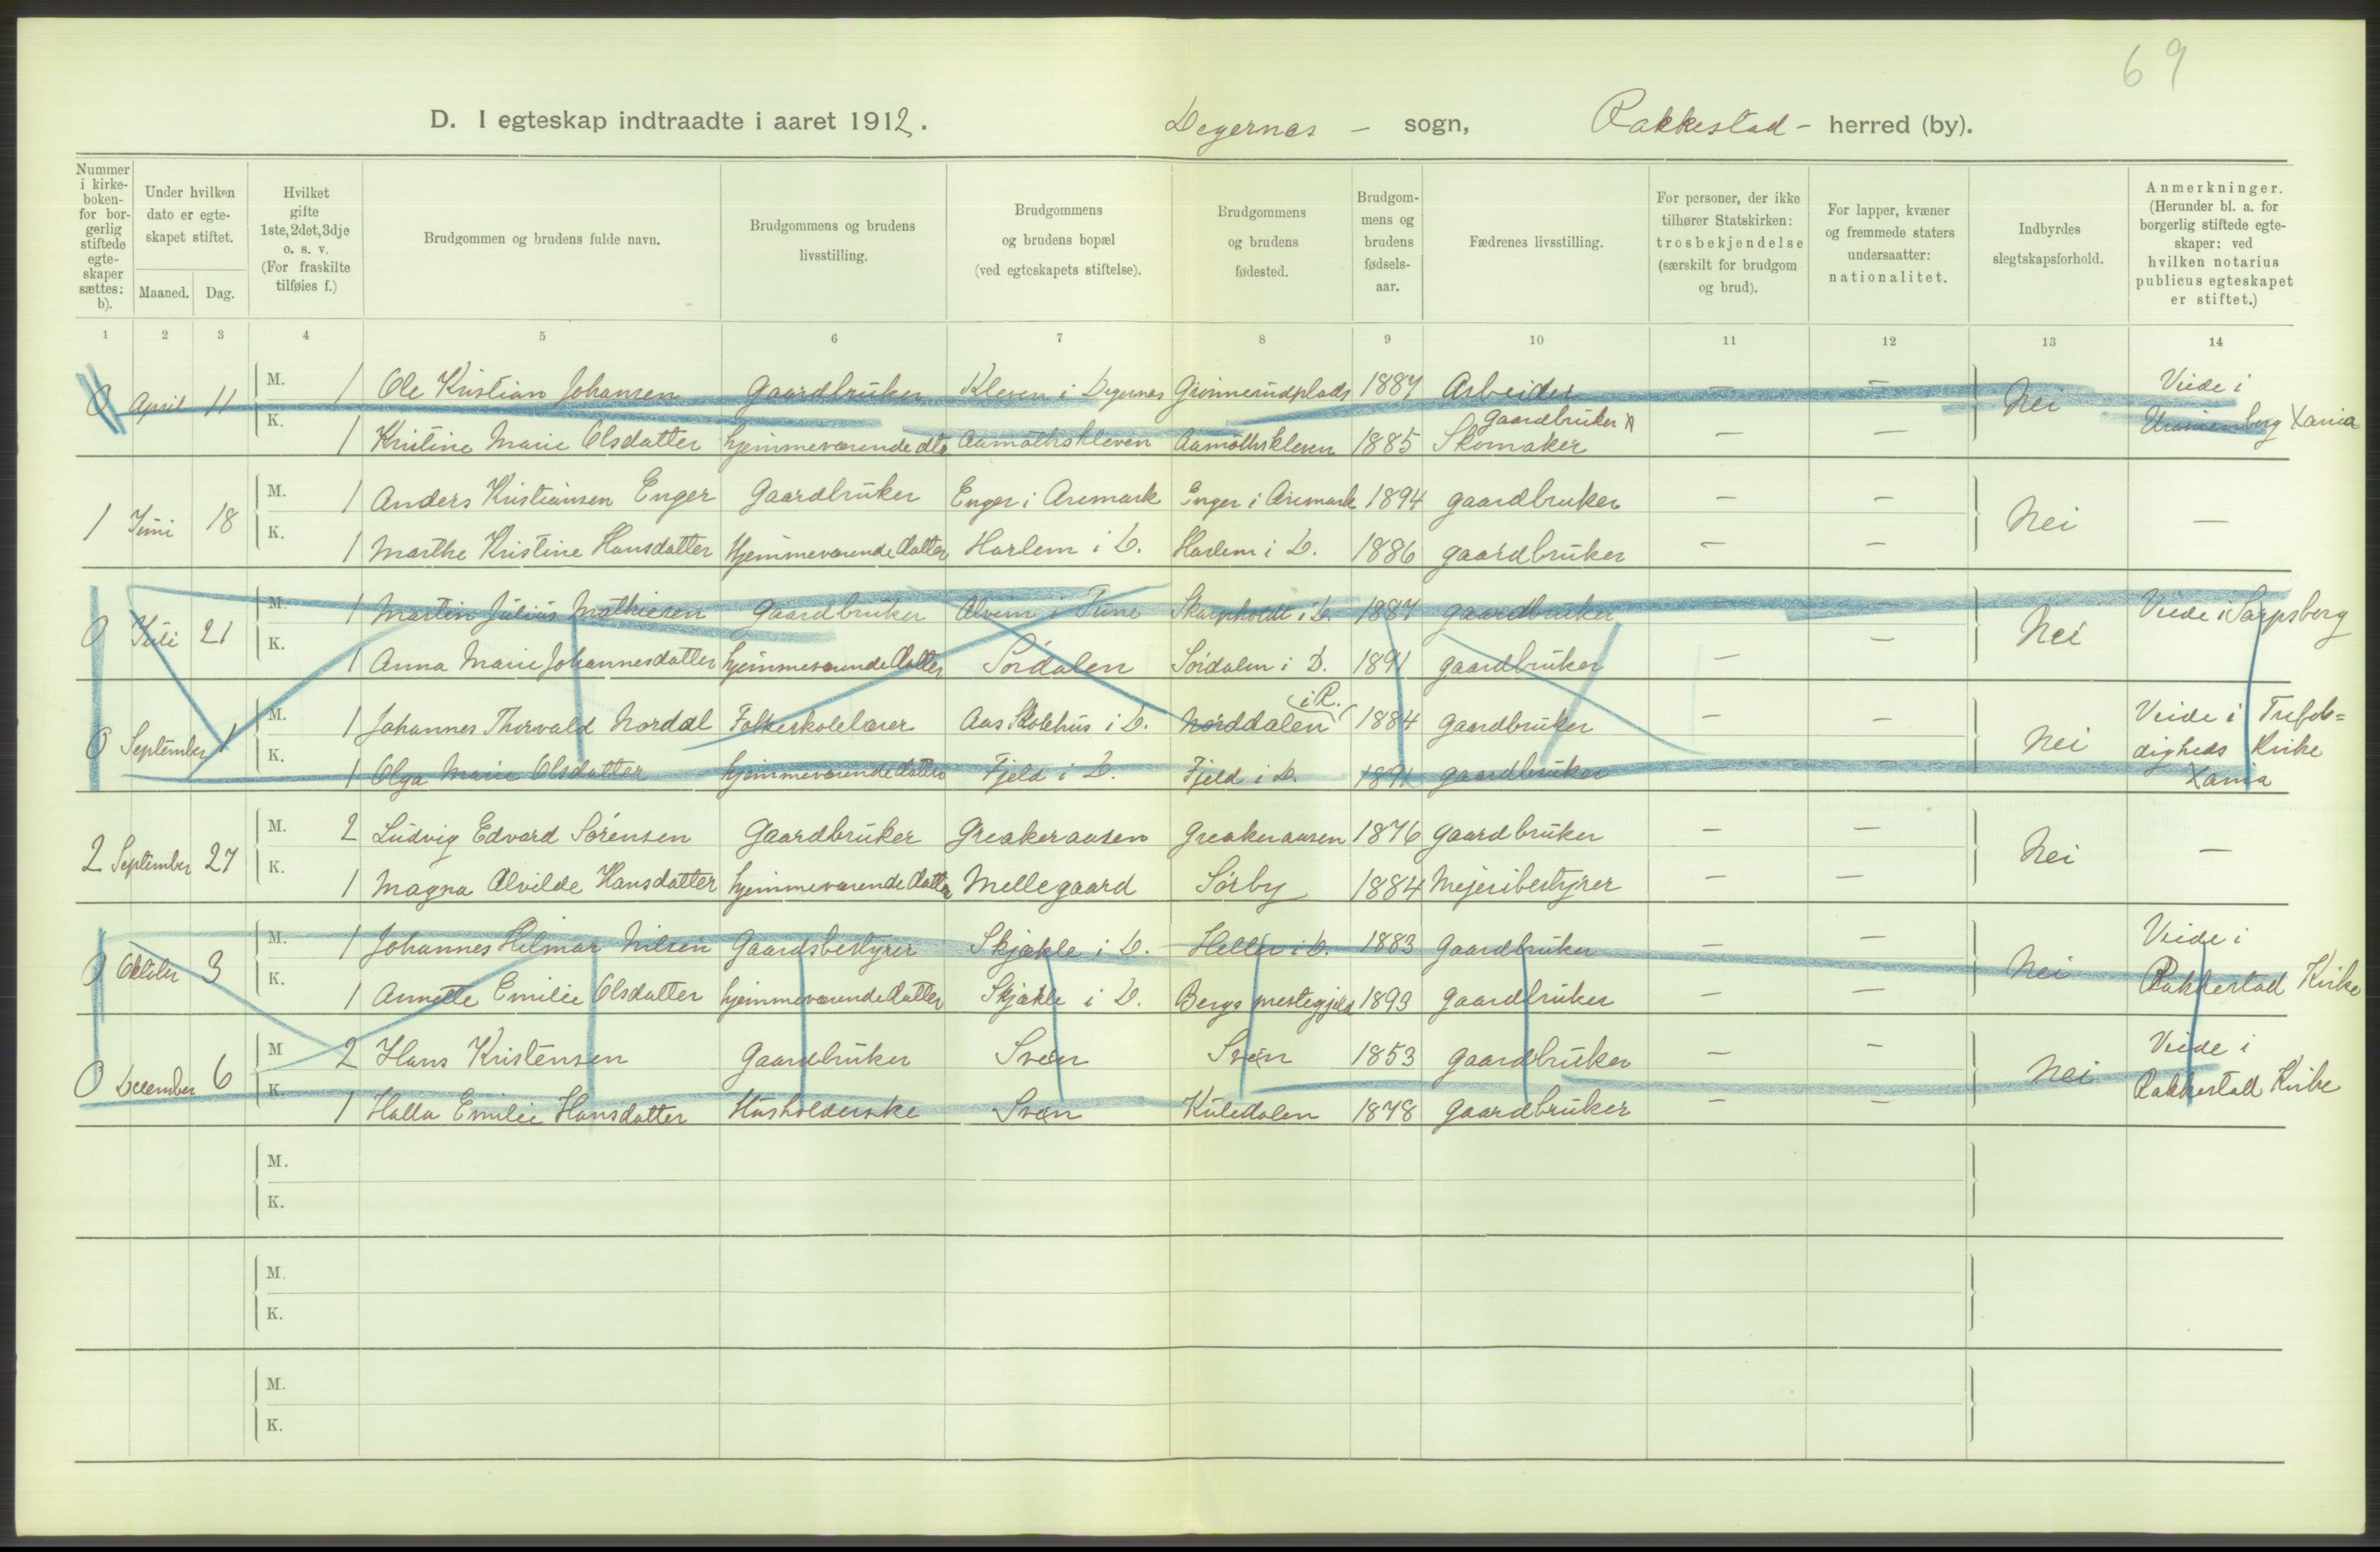 69
D. I egteskap indtraadte i aaret 1912. Degernes - sogn, Rakkestad - herred (by).
Nummer i kirkeboken- for borgerlig stiftede egteskaper sættes: b).
Under hvilken dato er egteskapet stiftet.
Maaned. Dag.
Hvilket gifte 1ste, 2det, 3dje o. s. v. (For fraskilte tilføies f.)
Brudgommen og brudens fulde navn.
Brudgommens og brudens livsstilling.
Brudgommens og brudens bopæl (ved egteskapets stiftelse).
Brudgommens og brudens fødested.
Brudgommens og brudens fødselsaar.
Fædrenes livsstilling.
For personer, der ikke tilhører Statskirken: trosbekjendelse (særskilt for brudgom og brud).
For lapper, kvæner og fremmede staters undersaatter: nationalitet.
Indbyrdes slegtskapsforhold.
Anmerkninger. (Herunder bl. a. for borgerlig stiftede egteskaper: ved hvilken notarius publicus egteskapet er stiftet.)
1 2 3 4 5 6 7 8 9 10 11 12 13 14
0 April 11 M. 1 Ole Kristian Johansen Gaardbruker Kleven i Degernes Grønnerudplads 1887 Arbeider — — Nei Viede i Uranienborg Xania
K. 1 Kristine Marie Olsdatter hjemmeværende dtr Aamothskleven Aamothskleven 1885 Gaardbruker Skomaker — —
1 Juni 18 M. 1 Anders Kristiansen Enger Gaardbruker Enger i Aremark Enger i Aremark 1894 gaardbruker — — Nei —
K. 1 Marthe Kristine Hansdatter Hjemmeværende datter Harlem i D. Harlem i D. 1886 gaardbruker — —
0 Juli 21 M. 1 Martin Julius Mathiesen Gaardbruker Alvim i Tune Skarpholdt i D. 1887 gaardbruker — — Nei Viede i Sarpsborg
K. 1 Anna Marie Johannesdatter hjemmeværende datter Sørdalen Sørdalen i D. 1891 gaardbruker — —
0 September 1 M. 1 Johannes Thorvald Nordal Folkeskolelærer Aas Skolehus i D. Norddalen (i R.) 1884 gaardbruker — — Nei Viede i Trefoldigheds Kirke Xania
K. 1 Olga Marie Olsdatter hjemmeværende datter Fjeld i D. Fjeld i D. 1891 gaardbruker — —
2 September 27 M. 2 Ludvig Edvard Sørensen Gaardbruker Greakeraasen Greakeraasen 1876 gaardbruker — — Nei —
K. 1 Magna Alvilde Hansdatter hjemmeværende datter Mellegaard Sørby 1884 Mejeribestyrer — —
0 Oktober 3 M. 1 Johannes Hilmar Nilsen Gaardsbestyrer Skjækle i D. Heller i D. 1883 Gaardbruker — — Nei Viede i Rakkestad Kirke
K. 1 Annette Emilie Olsdatter hjemmeværende datter Skjækle i D. Bergs prestegjeld 1893 gaardbruker — —
0 December 6 M 2 Hans Kristensen Gaardbruker Sven Sven 1853 gaardbruker — — Nei Viede i Rakkestad Kirke
K. 1 Halla Emilie Hansdatter Husholderske Sven Kuledalen 1878 gaardbruker — —
M.
K.
M.
K.
M.
K.